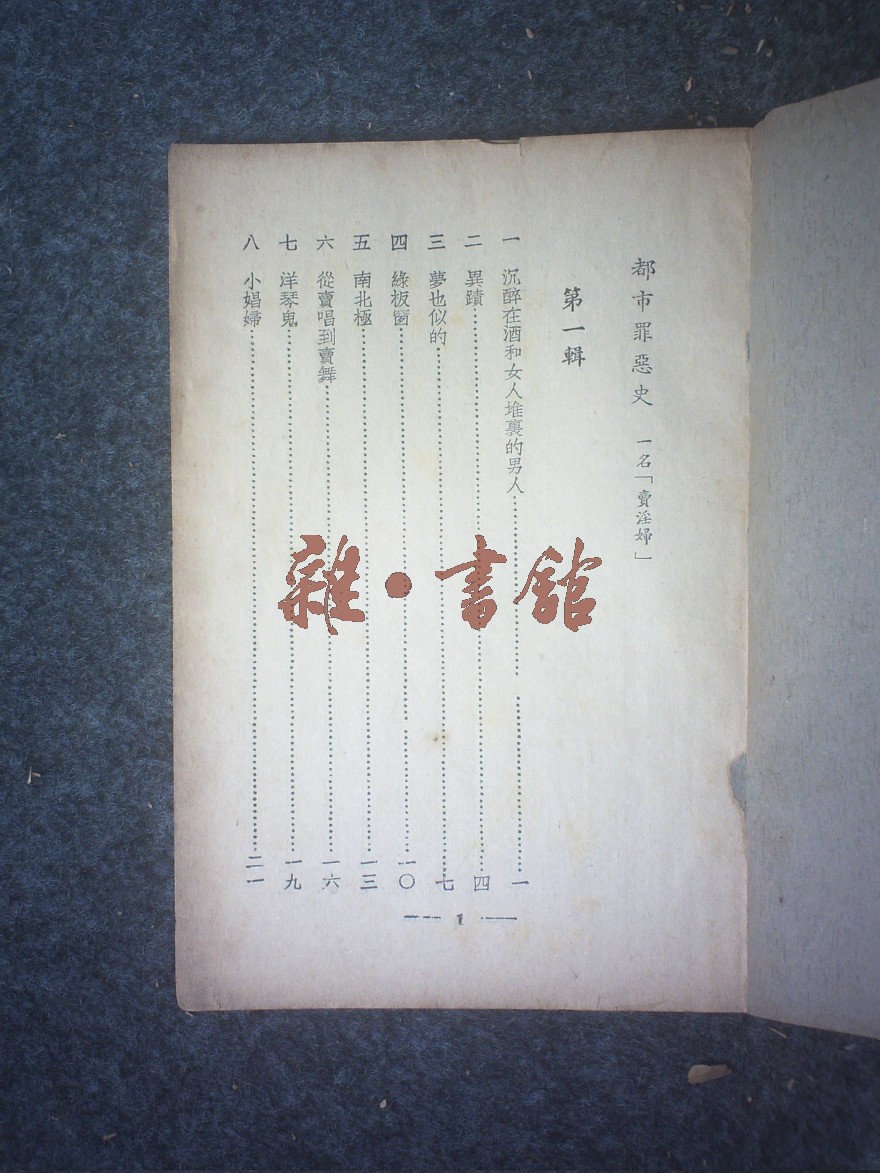 都市罪惡史 一名「賣淫婦」
第一輯
一 沉醉在酒和女人堆裏的男人…………一
二 異蹟…………四
三 夢也似的…………七
四 綠板窗…………一〇
五 南北極…………一三
六 從賣唱到賣舞…………一六
七 洋琴鬼…………一九
八 小娼婦…………二一
— 1 —
雜·書館